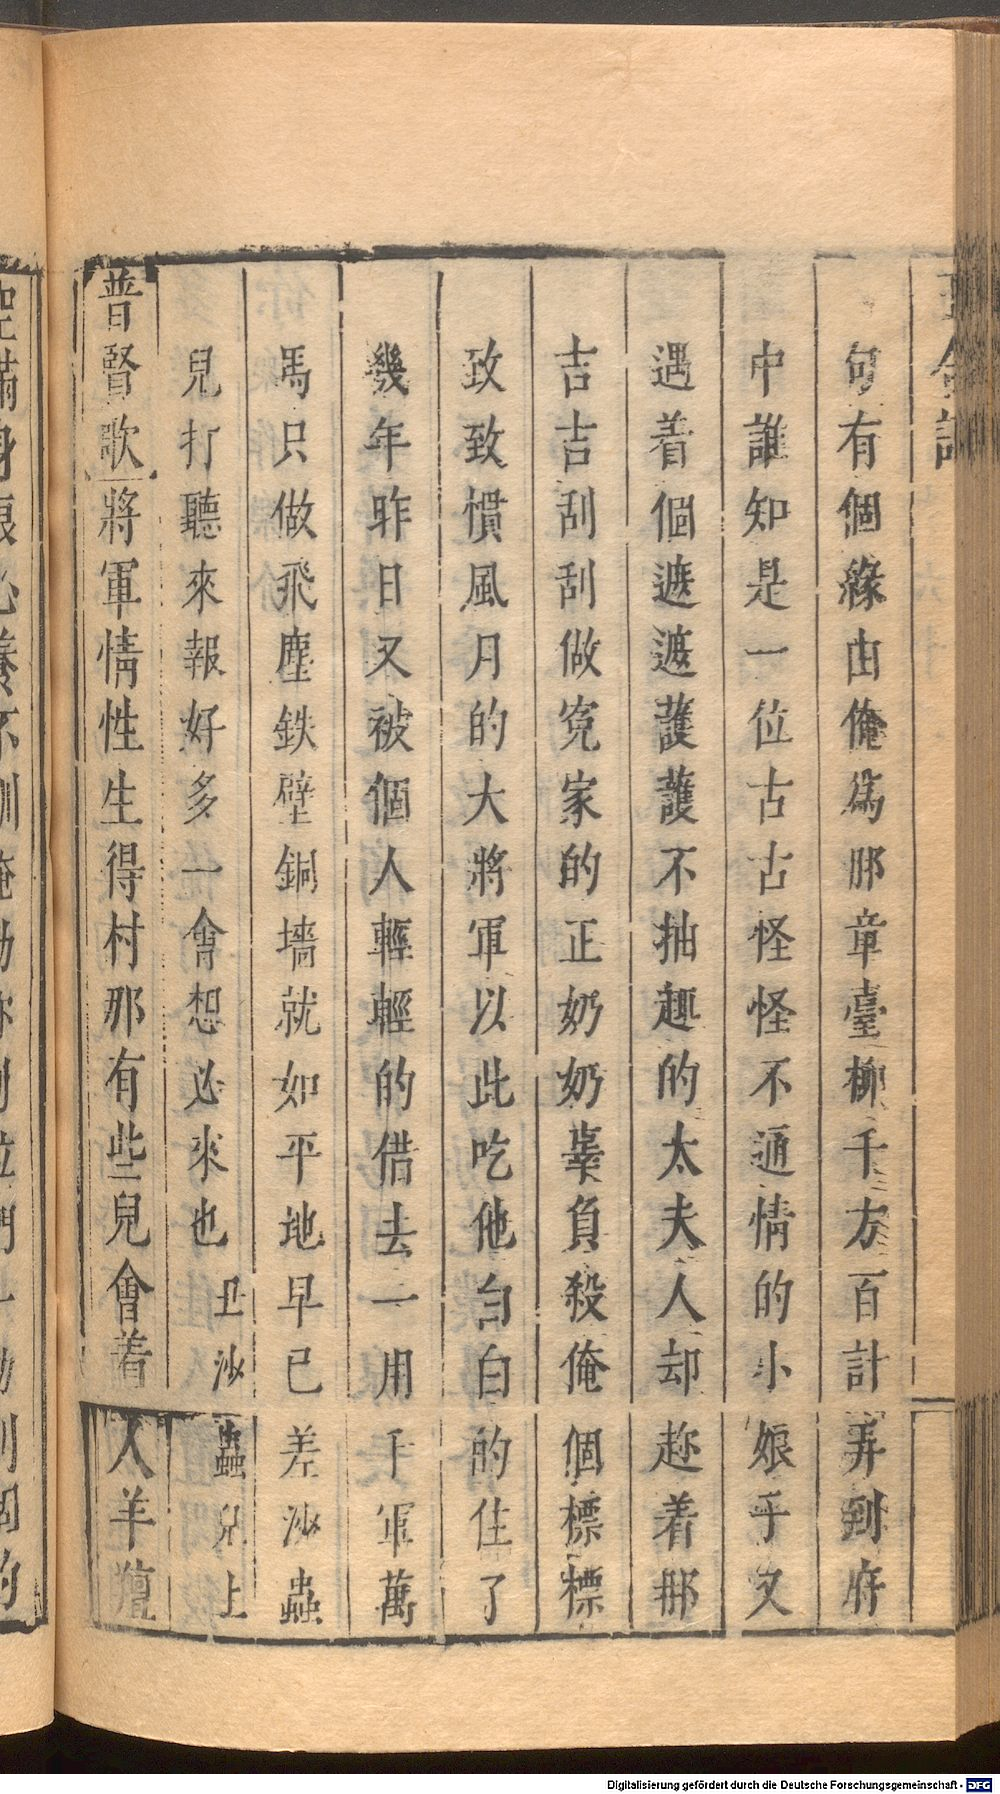 玉合記
何有個緣由俺爲那章臺柳千方百計弄到府
中誰知是一位古古怪怪不通情的小娘子又
遇着個遮遮護護不抽趣的太夫人却趂着那
吉吉刮刮做寃家的正奶奶辜負殺俺個標標
致致慣風月的大將軍以此吃他白白的住了
幾年昨日又被個人輕輕的借去一用千軍萬
馬只做飛塵鉄壁銅墻就如平地早已差沙蟲
兒打聽來報好多一會想必來也 丑沙蟲兒上
普賢歌 將軍情性生得村那有些兒會着人羊羶
Digitalisierung gefördert durch die Deutsche Forschungsgemeinschaft - DFG